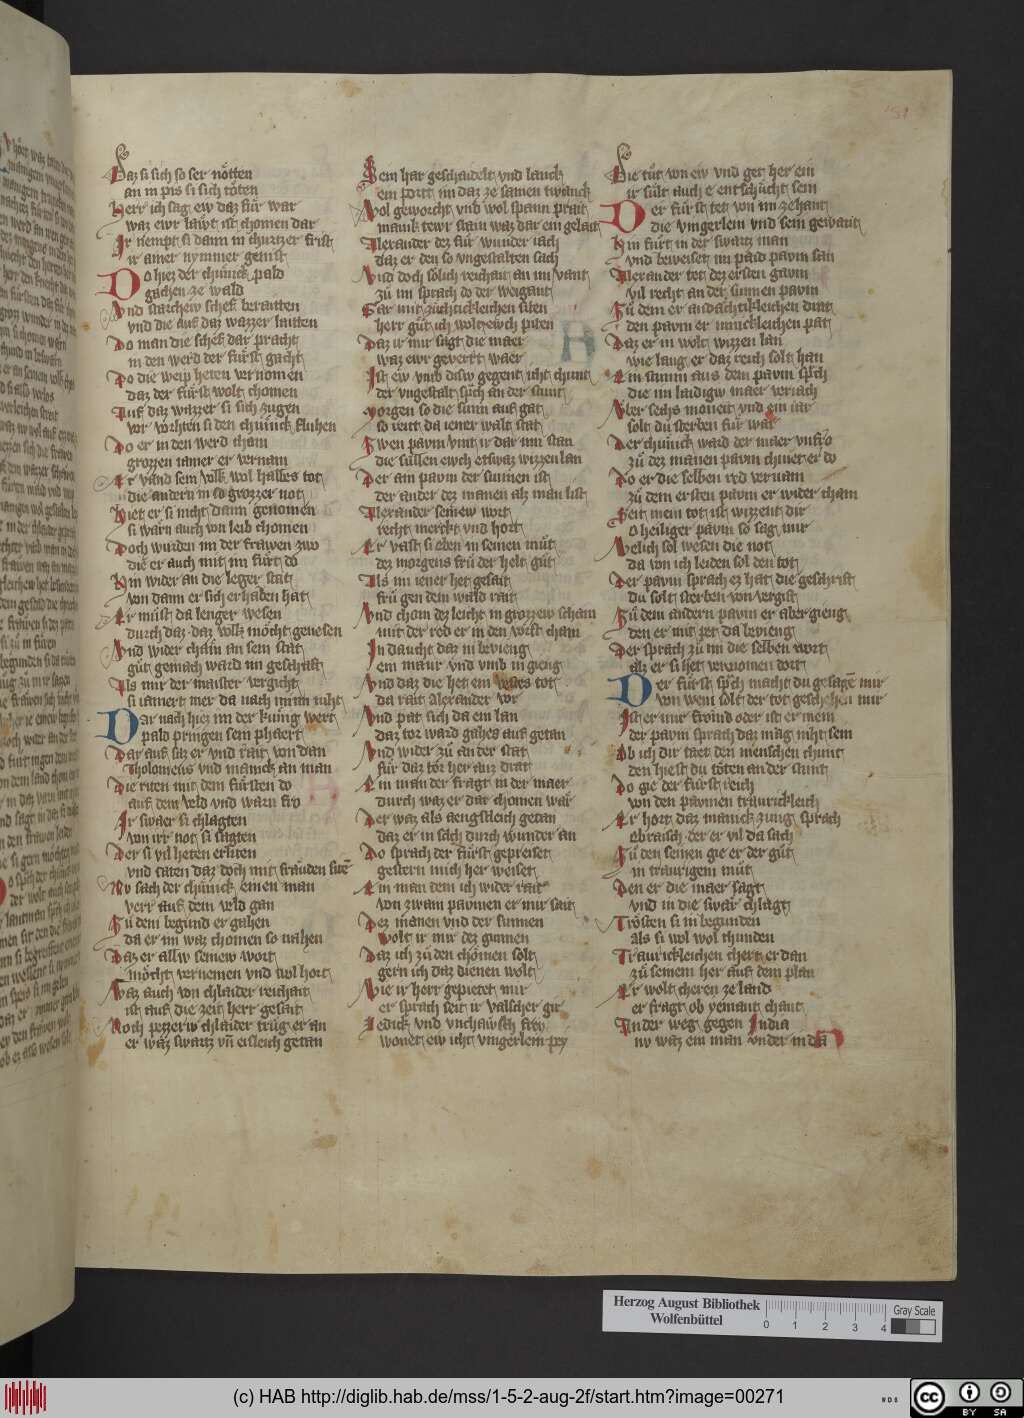 151
Daz si sich so ser nötten
an in pis si sich töten
Herr ich sag ew daz für war
waz ewr läwt ist chomen dar
Ir nempt si dann in churtzer frist
ir amer nymmer genist
Do hiez der chünick pald
gachen ze wald
Vnd starchew schef beraitten
vnd die auf daz wazzer laitten
Do man die schef dar pracht
in den werd der fürst gacht
Do die weip heten vernomen
daz der fürst wolt chomen
Auf daz wazzer si sich zugen
vor vorchten si den chünick fluhen
Do er in den werd cham
grozzen iamer er vernam
Er vand sein volk wol halbs tot
die andern in so grozzer not
Hiet er si nicht dann genomen
si warn auch von leib chomen
Doch wurden im der frawen zwo
die er auch mit im fürt do
Hin wider an die leger stat
von dann er sich erhaben hat
Er müst da lenger wesen
durch daz daz volk möcht genesen
Vnd wider chäm an sein stat
güt gemach ward im geschaft
Als mir der maister vergicht
si iamert mer da nach im nicht
Dar nach hiez im der kunig wert
pald pringen sein phaert
Dar auf saz er vnd rait von dan
Tholomeus vnd manick an man
Die riten mit dem fürsten do
auf dem veld vnd warn fro
Ir swaer si chlagten
von irr not si sagten
Der si vil heten erliten
vnd taten daz doch mit fräuden siten
Nv sach der chünick einen man
verr auf dem veld gan
Zu dem begund er gahen
da er im waz chomen so nahen
Daz er allw seinew wort
möcht vernemen vnd wol hort
Waz auch von chlaider reichait
ist auf die zeit herr gesait
Noch pezzerw chlaider trüg er an
er waz swartz vn eisleich getan
Sein har geschaidelt vnd lanck
ein port im daz ze samen twanck
Wol geworcht vnd wol spann prait
manik tewr stain waz dar ein gelait
Alexander dez für wunder iach
daz er den so vngestalten sach
Vnd doch sölich reichait an im vant
zü im sprach do der weigant
Gar mit züchticleichen siten
herr güt ich wolt ewch piten
Daz ir mir sagt die maer
waz ewr gevertt waer
Ist ew vmb disw gegent icht chunt
der vngestalt spch an der stunt
Morgen so die sunn auf gat
so reitt da iener walt stat
Zwen pavm vint ir dar inn stan
die süllen ewch etswaz wizzen lan
Der ain pavm der sunnen ist
der ander dez manen alz man list
Alexander seinew wort
recht merckt vnd hort
Er vast si eben in seinen müt
dez morgens frü der helt güt
Als im iener het gesait
frü gen dem wald rait
Vnd cham dez leicht in grozzew scham
mit der red er in den vorst cham
In daucht daz in bevieng
ein maur vnd vmb in gieng
Vnd daz die het ein vestes tor
da rait Alexander vor
Vnd pat sich da ein lan
daz tor ward gahes auf getan
Vnd wider zü an der stat
für daz tör her auz drat
Ein man der fragt in der maer
durch waz er dar chomen wär
Der waz als aengstleich getan
daz er in sach durch wunder an
Do sprach der fürst gepreiset
gestern mich her weiset
Ein man dem ich wider rait
von zwain pavmen er mir sait
Dez manen vnd der sunnen
wolt ir mir dez gunnen
Daz ich zü den chömen solt
gern ich daz dienen wolt
Wie ir herr gepietet mir
er sprach seit ir valscher gir
Ledick vnd vnchawsch frey
wonet ew icht vingerlein pey
Die tüt von ew vnd get her ein
ir sült auch e entschücht sein
Der fürst tet von im zehant
die vingerlein vnd sein gewant
Hin fürt in der swartz man
vnd beweiset im paid pavm san
Alexander tet dez ersten gaum
vil recht an der sunnen pavm
Zü dem er andachtickleichen drat
den pavm er innickleichen pat
Daz er in wolt wizzen lan
wie lang er daz reich solt han
Ein stimm aus dem pavm spch
die im laidigw maer veriach
Vber sechs moneit vnd ein iar
solt du sterben für war
Der chünick ward der maer vnfro
zü dez manen pavm chniet er do
Do er die selben red vernam
zü dem ersten pavm er wider cham
Seit mein tot ist wizzent dir
O heiliger pavm so sag mir
Welich sol wesen die not
da von ich leiden sol den tot
Der pavm sprach ez hat die geschrift
du solt sterben von vergift
Zü dem andern pavm er aber gieng
den er mit pet da bevieng
Der sprach zü im die selben wort
alz er si het vernomen dort
Der fürst spch macht du gesagen mir
von wem solt der tot geschehen mir
Ist er mir froind oder ist er mein
der pavm sprach daz mag niht sein
Ob ich dir taet den menschen chunt
den hiest du töten an der stunt
Do gie der fürst reich
von den pavmen traurickleich
Er hort daz manick zung sprach
ebraisch der er vil da sach
Zü den seinen gie er der güt
in traurigem müt
Den er die maer sagt
vnd in die swär chlagt
Trösten si in begunden
als si wol wol chunden
Traurickleichen chert er dan
zü seinem her auf dem plan
Er wolt cheren ze land
er fragt ob yemant chant
Ander weg gegen India
nv waz ein man vnder in da
Herzog August Bibliothek
Wolfenbüttel
0 1 2 3 4
Gray Scale
(c) HAB http://diglib.hab.de/mss/1-5-2-aug-2f/start.htm?image=00271
WDB
cc BY SA